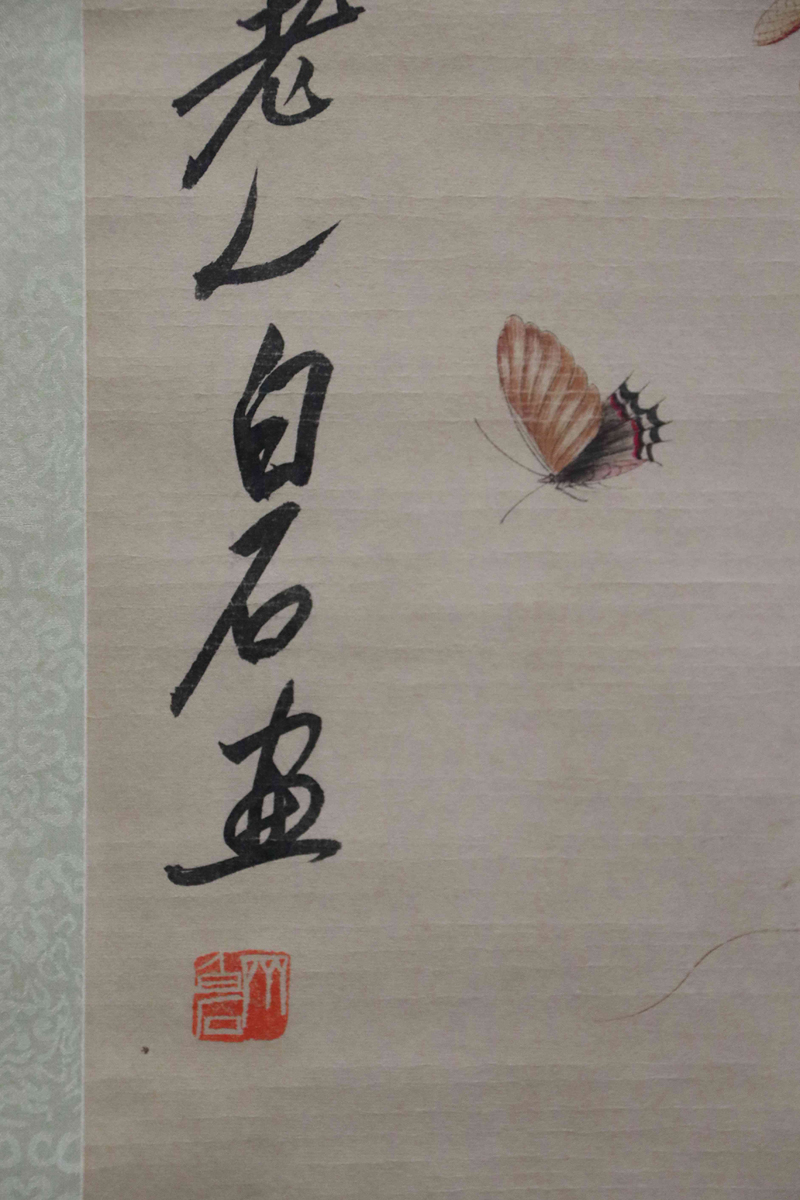 老人白石画